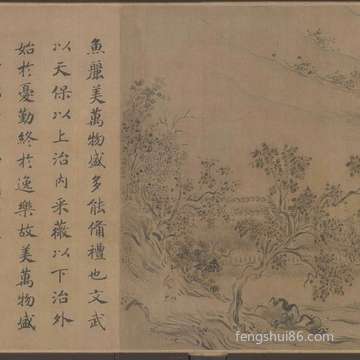 魚麗美萬物盛多能備禮也文武
以天保以上治內采薇以下治外
始於憂勤終於逸樂故美萬物盛
fengshui86.com